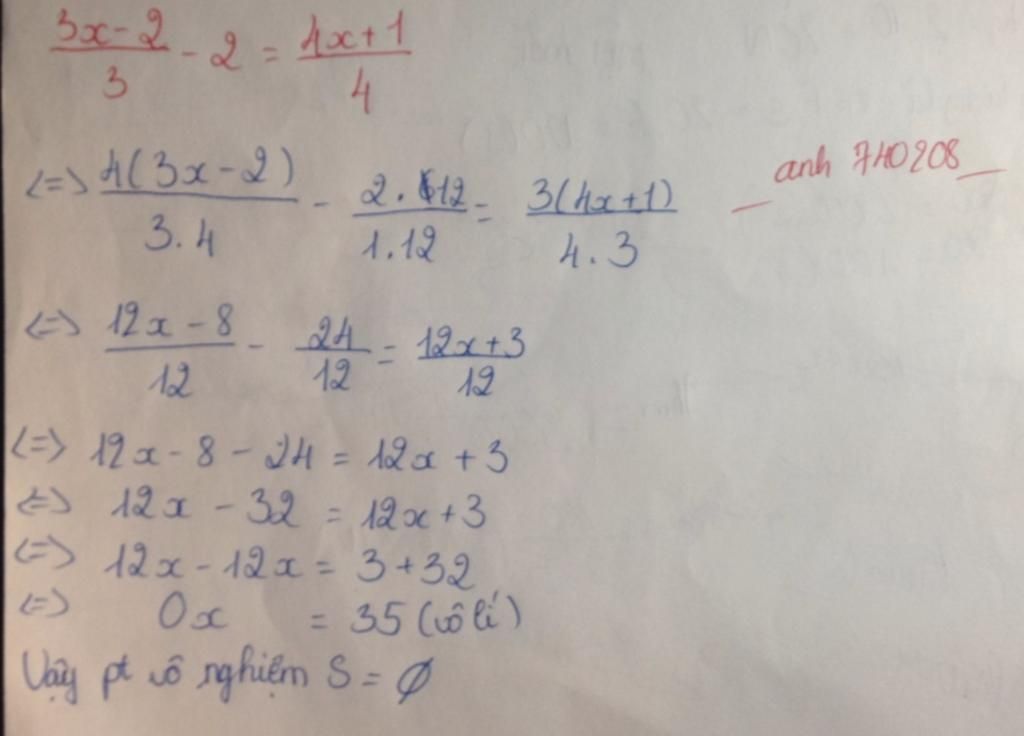 (3x-2)/3 - 2 = (4x+1)/4
<=> 4(3x-2)/3.4 - 2.12/1.12 = 3(4x+1)/4.3
anh 740208
<=> (12x-8)/12 - 24/12 = (12x+3)/12
<=> 12x - 8 - 24 = 12x + 3
<=> 12x - 32 = 12x + 3
<=> 12x - 12x = 3 + 32
<=> 0x = 35 (vô lí)
Vậy pt vô nghiệm S = ∅